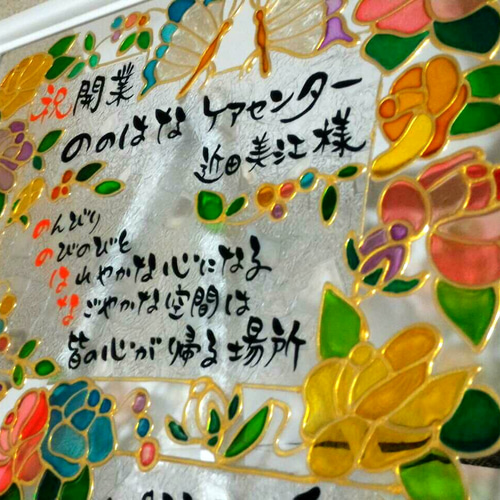 祝 開業
ののはな ケアセンター
近田美江様
のんびり
のびのびと
はれやかな心になる
なごやかな空間は
皆の心が帰る場所